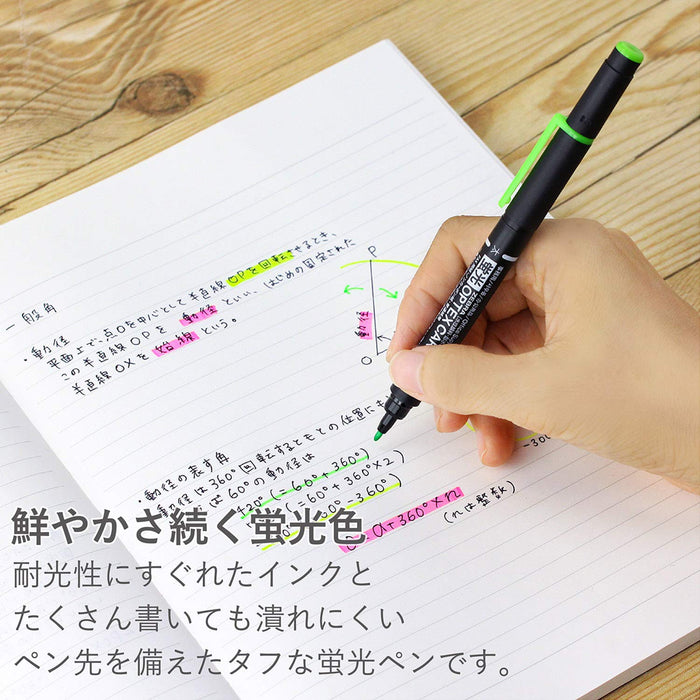 一般角
・動径
平面上で、点Oを中心として半直線OPを回転させるとき、
この半直線OPを 動径 といい、はじめの固定された
半直線OXを 始線 という。
P
動径
O
・動径の表す角
動径は360°回転するともとの位置にも
60°の動径は
420°(=60°+360°)
(=60°+360°×2)
60°-360°)
α+360°×n
(nは整数)
-300
太
蛍光 OPTEX CARE
ZEBRA
鮮やかさ続く蛍光色
耐光性にすぐれたインクと
たくさん書いても潰れにくい
ペン先を備えたタフな蛍光ペンです。